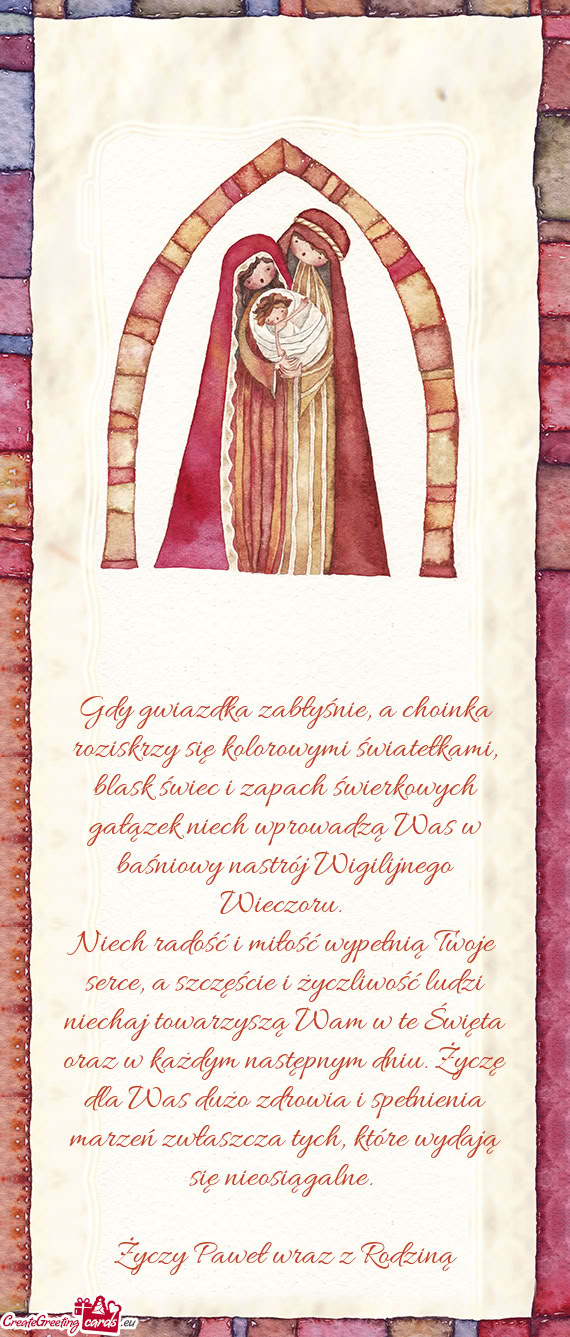 Gdy gwiazdka zabłyśnie, a choinka
roziskrzy się kolorowymi światełkami,
blask świec i zapach świerkowych
gałązek niech wprowadzą Was w
baśniowy nastrój Wigilijnego
Wieczoru.
Niech radość i miłość wypełnią Twoje
serce, a szczęście i życzliwość ludzi
niechaj towarzyszą Wam w te Święta
oraz w każdym następnym dniu. Życzę
dla Was dużo zdrowia i spełnienia
marzeń zwłaszcza tych, które wydają
się nieosiągalne.
Życzy Paweł wraz z Rodziną
CreateGreeting cards .eu